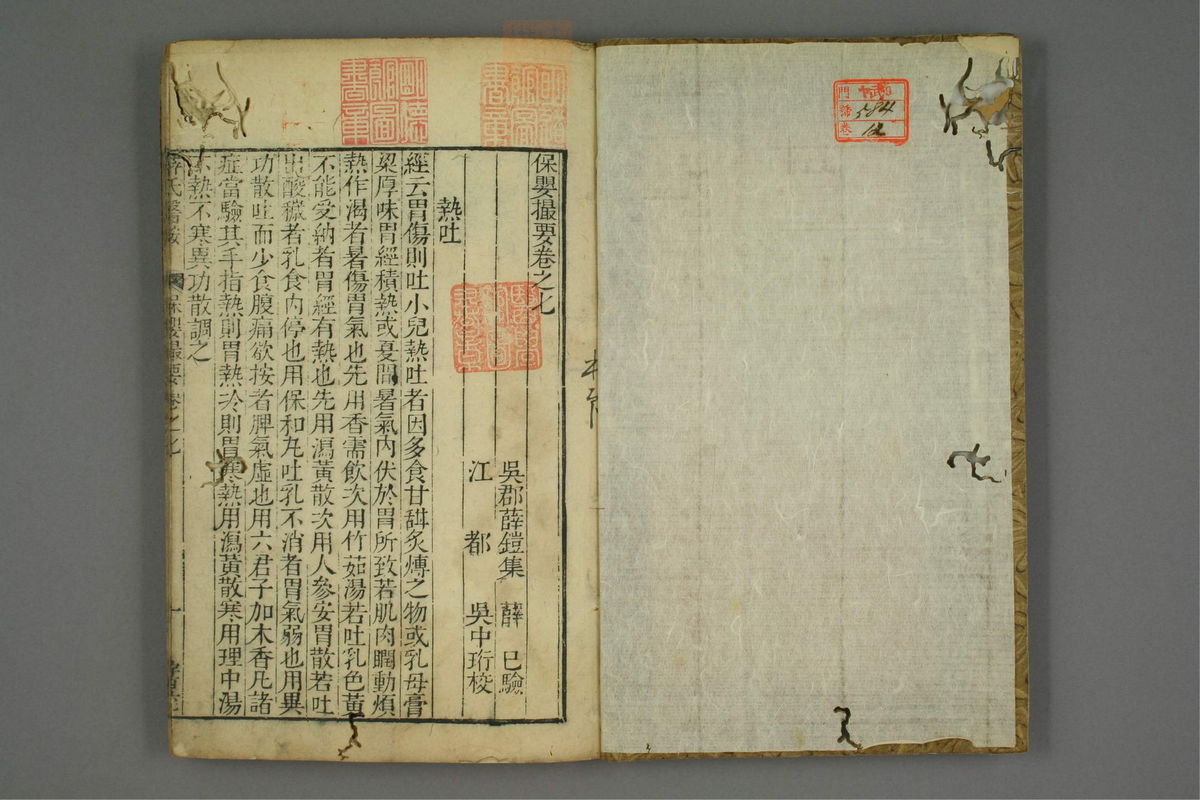 保嬰撮要卷之七
吳郡薛鎧集 薛 已驗
江 都 吳中珩校
熱吐
經云胃傷則吐小兒熱吐者因多食甘甜炙煿之物或乳母膏
粱厚味胃經積熱或夏間暑氣內伏於胃所致若肌肉瞤動煩
熱作渴者暑傷胃氣也先用香薷飲次用竹茹湯若吐乳色黃
不能受納者胃經有熱也先用瀉黃散次用人參安胃散若吐
出酸穢者乳食內停也用保和丸吐乳不消者胃氣弱也用異
功散吐而少食腹痛欲按者脾氣虛也用六君子加木香凡諸
症當驗其手指熱則胃熱冷則胃寒熱用瀉黃散寒用理中湯
不熱不寒異功散調之
薛氏醫按 保嬰撮要卷之七 一
明德郷圖書章
門
號 584
卷 12